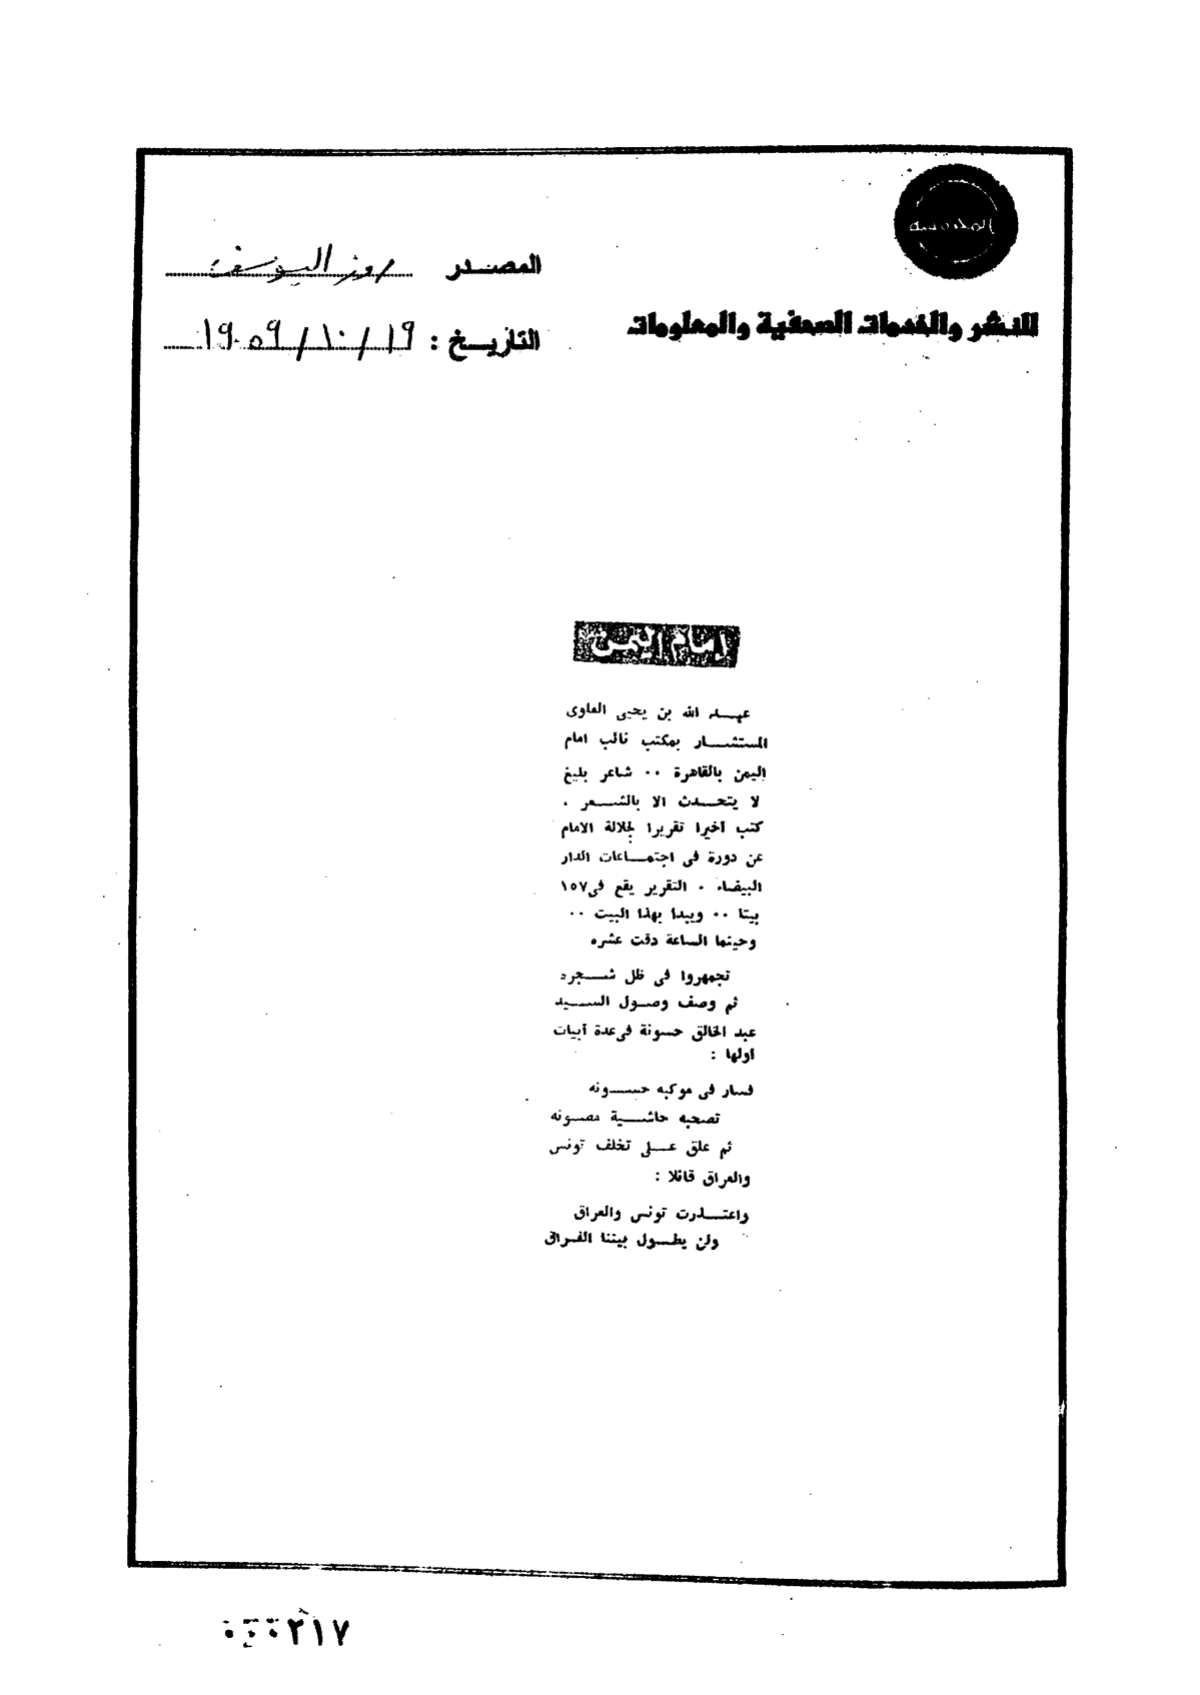 المحروسة
للنشر والخدمات الصحفية والمعلومات
المصدر روز اليوسف
التاريخ : ١٩ / ١٠ / ١٩٥٩
إمام اليمن
عبد الله بن يحيى العلوى
المستشار بمكتب نائب امام
اليمن بالقاهرة ٠٠ شاعر بليغ
لا يتحدث الا بالشعر .
كتب أخيرا تقريرا لجلالة الامام
عن دورة فى اجتماعات الدار
البيضاء . التقرير يقع فى ١٥٧
بيتا ٠٠ ويبدا بهذا البيت ٠٠
وحينما الساعة دقت عشره
تجمهروا فى ظل شجره
ثم وصف وصول السيد
عبد الخالق حسونة فى عدة أبيات
اولها :
فسار فى موكبه حسونه
تصحبه حاشية مصونه
ثم علق على تخلف تونس
والعراق قائلا :
واعتذرت تونس والعراق
ولن يطول بيننا الفراق